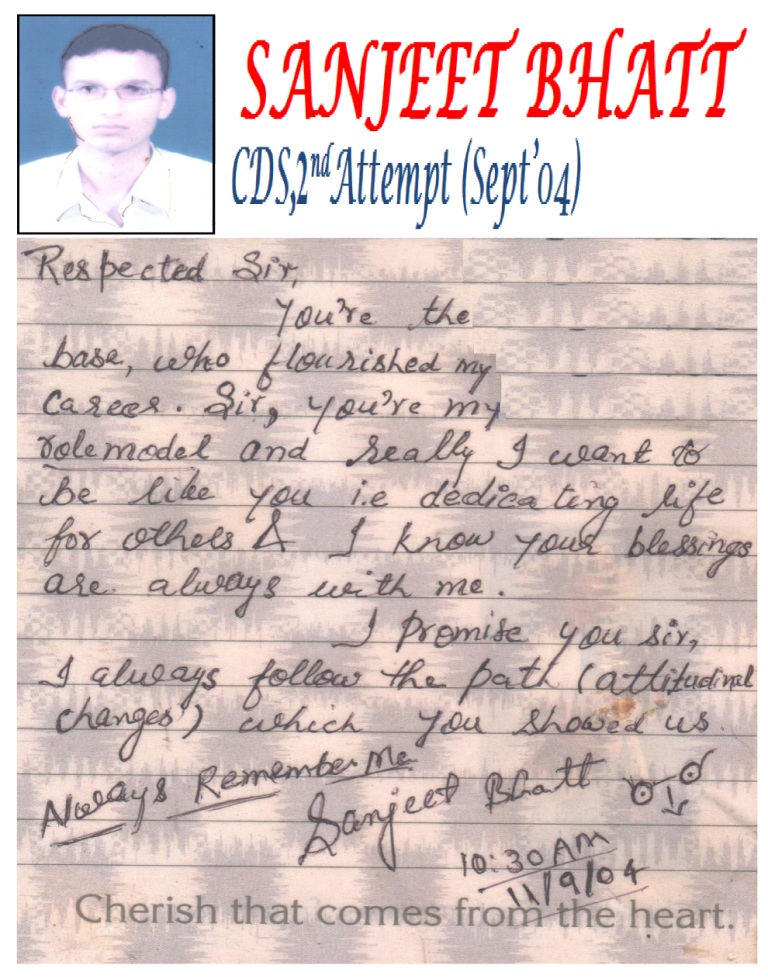 SANJEET BHATT
CDS,2nd Attempt (Sept'04)
Respected Sir,
You're the
base, who flourished my
career. Sir, you're my
rolemodel and really I want to
be like you i.e dedicating life
for others & I know your blessings
are always with me.
I promise you sir,
I always follow the path (attitudinal
changes') which you showed us.
Always Remember Me
Sanjeet Bhatt
10:30 AM
11/9/04
Cherish that comes from the heart.